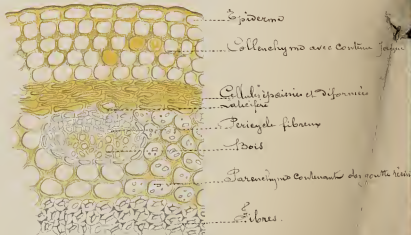 Epiderme
Collenchyme avec contenu jaune
Cellules épaissies et déformées
Laticifère
Péricycle fibreux
Bois
Parenchyme contenant des goutte
Fibres.